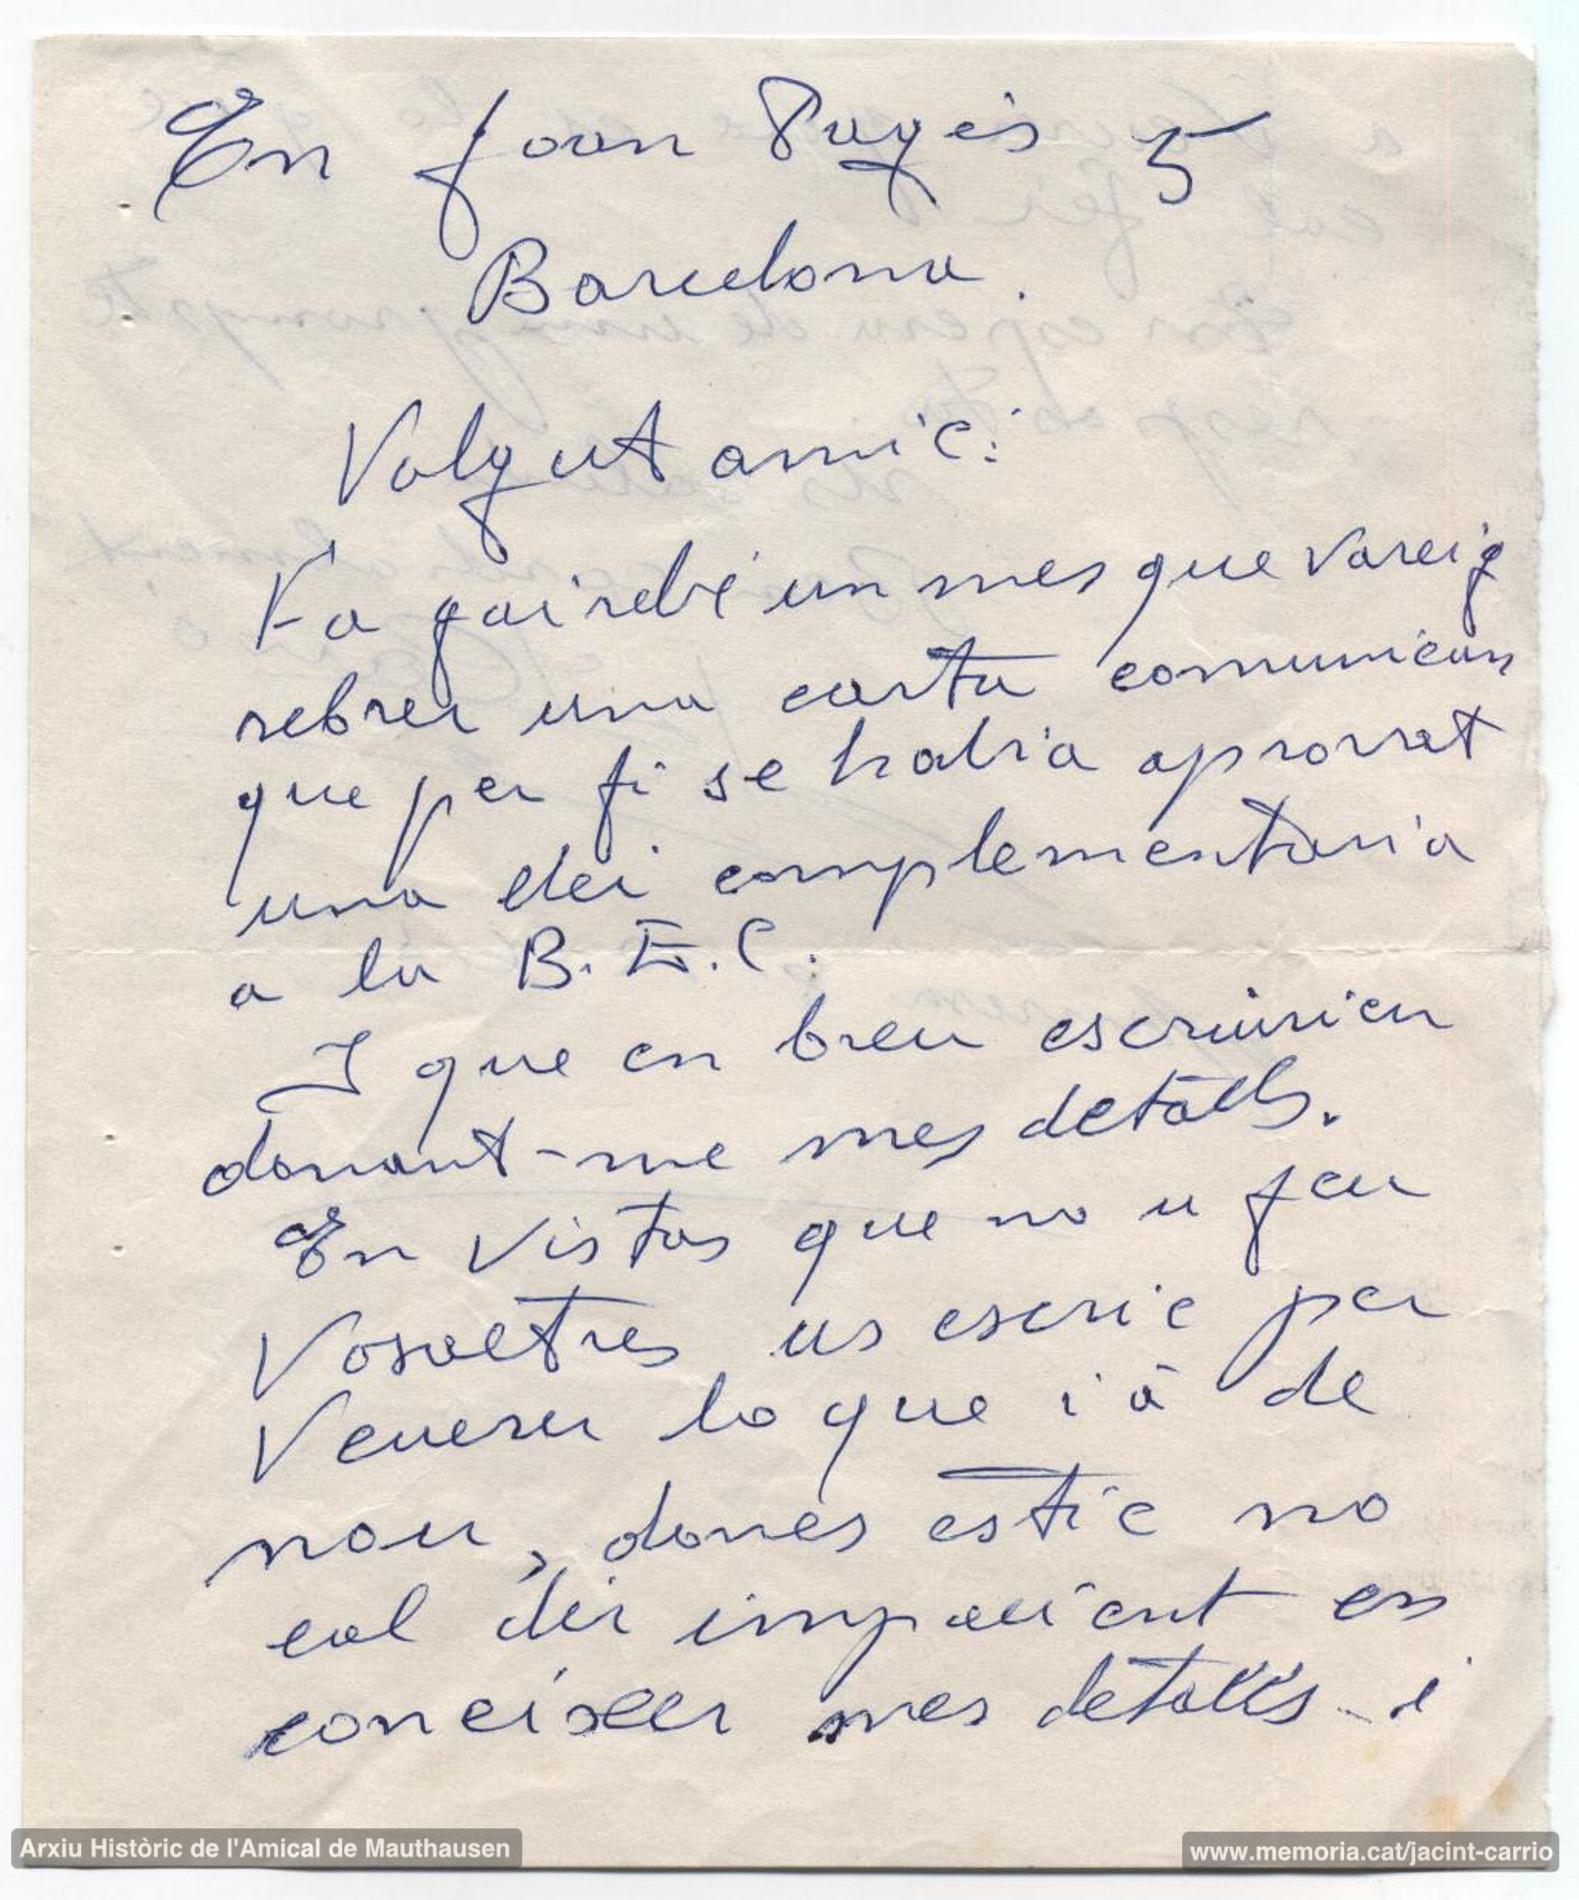 En Joan Pagès
Barcelona.
Volgut amic:
Fa gairebé un mes que vareig
rebrer una carta comunican
que per fi se habia aprovat
una llei complementaria
a la B.E.C.
I que en breu escriurieu
donant-me mes detalls.
En vistas que no u feu
Vosaltres us escric per
Veuerer lo que i à de
nou, donçs estic no
cal dir impacient en
coneixer mes detalls i
Arxiu Històric de l'Amical de Mauthausen
www.memoria.cat/jacint-carrio